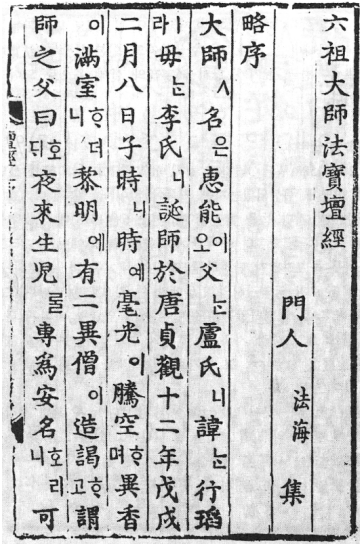 六祖大師法寶壇經
門人 法海 集
略序
大師ㅅ名은惠能이오父ᄂᆞᆫ盧氏니諱ᄂᆞᆫ行瑫
ㅣ라毋ᄂᆞᆫ李氏니誕師於唐貞觀十二年戊戌
二月八日子時니時예毫光이騰空ᄒᆞ며異香
이滿室ᄒᆞ더니黎明에有二異僧이造謁ᄒᆞ고謂
師之父曰호ᄃᆡ夜來生児ᄅᆞᆯ專為安名호리니可